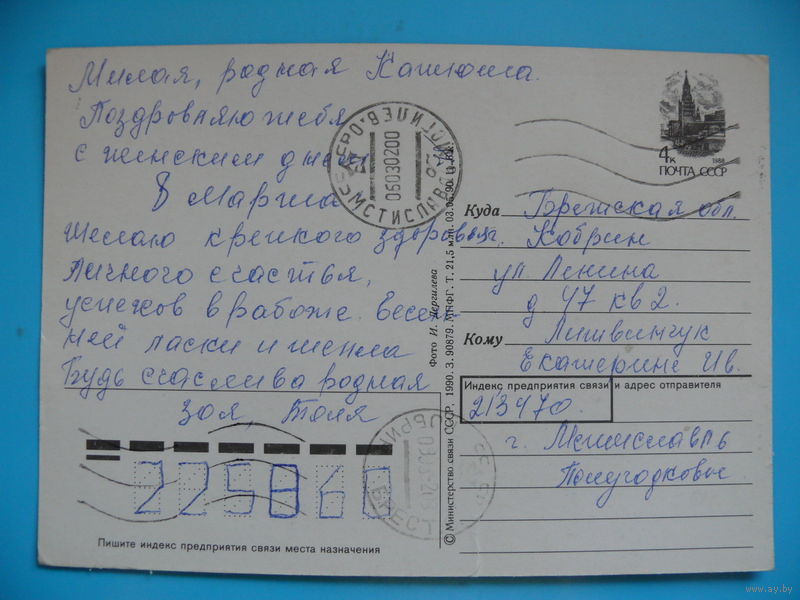 Милая, родная Катюша.
Поздравляю тебя
с женским днем
8 Марта
Желаю крепкого здоровья.
Личного счастья,
успехов в работе. Весен
ней ласки и тепла
Будь счастлива родная
Зоя, Толя
225860
Пишите индекс предприятия связи места назначения
МСТИСЛАВЛЬ
06030200
БРЕСТ
© Министерство связи СССР. 1990. З. 90879. МПФГ. Т. 21,5 млн. 03.05.90. Ц. 8 к.
4к
1988
ПОЧТА СССР
Куда Брестская обл.
г. Кобрин
ул. Ленина
д 47 кв 2.
Кому Литвинчук
Екатерине Ив.
Индекс предприятия связи и адрес отправителя
213470.
г. Мстиславль
www.ay.by